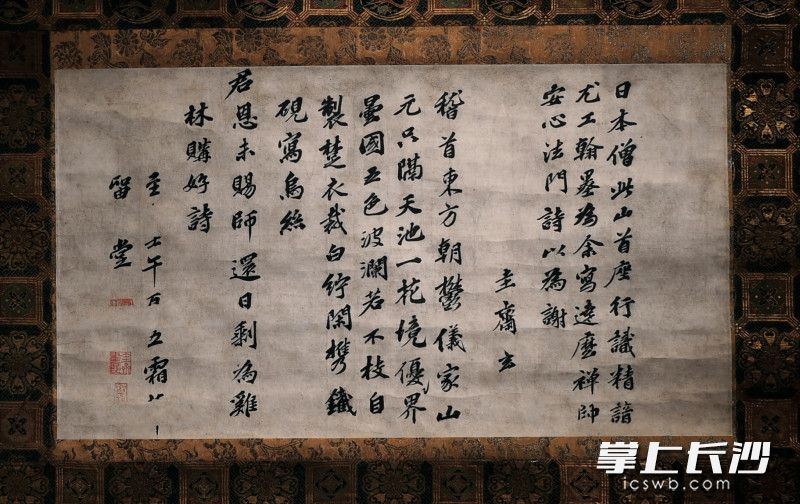 日本僧此山首座行識精諳
尤工翰墨為余寫達麽禅師
安心法門詩以為謝
圭齋玄
稽首東方朝鬱儀家山
元只隔天池一花境優界
曇國五色波瀾若木枝自
製楚衣裁白紵閑携鐵
硯寫烏絲
君恩未賜師還日剩為雞
林購好詩
至 壬午 五霜
留堂
掌上长沙
icswb.com